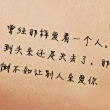 曾经那样爱着一个人，
到头来还是失去了，那
倒不如让别人来爱你